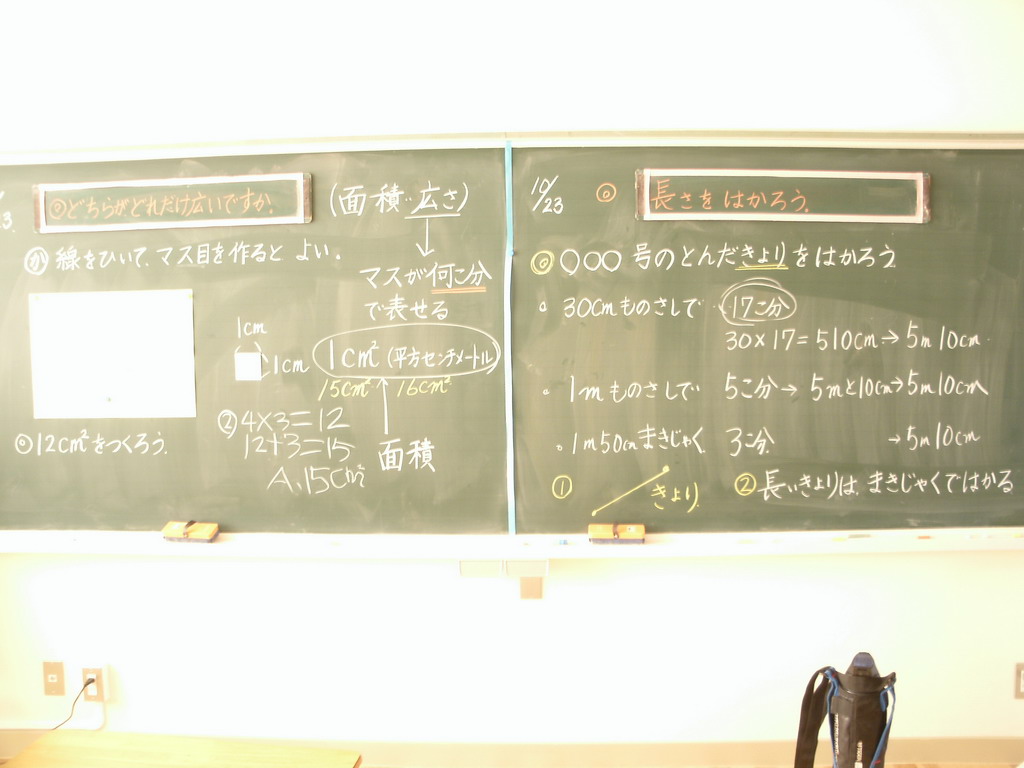 ◎どちらがどれだけ広いですか。
(面積…広さ)
か 線をひいて、マス目を作ると よい。
マスが何こ分
で表せる
1cm
1cm
1cm²(平方センチメートル)
15cm² 16cm²
面積
◎12cm²をつくろう。
② 4×3=12
12+3=15
A、15cm²
10/23 ◎ 長さを はかろう。
◎○○○ 号のとんだきょりをはかろう
30cmものさしで 17こ分
30×17=510cm→5m10cm
1mものさしで 5こ分→ 5mと10cm→5m10cm
1m50cmまきじゃく 3こ分 →5m10cm
① きょり
②長いきょりは、まきじゃくではかる